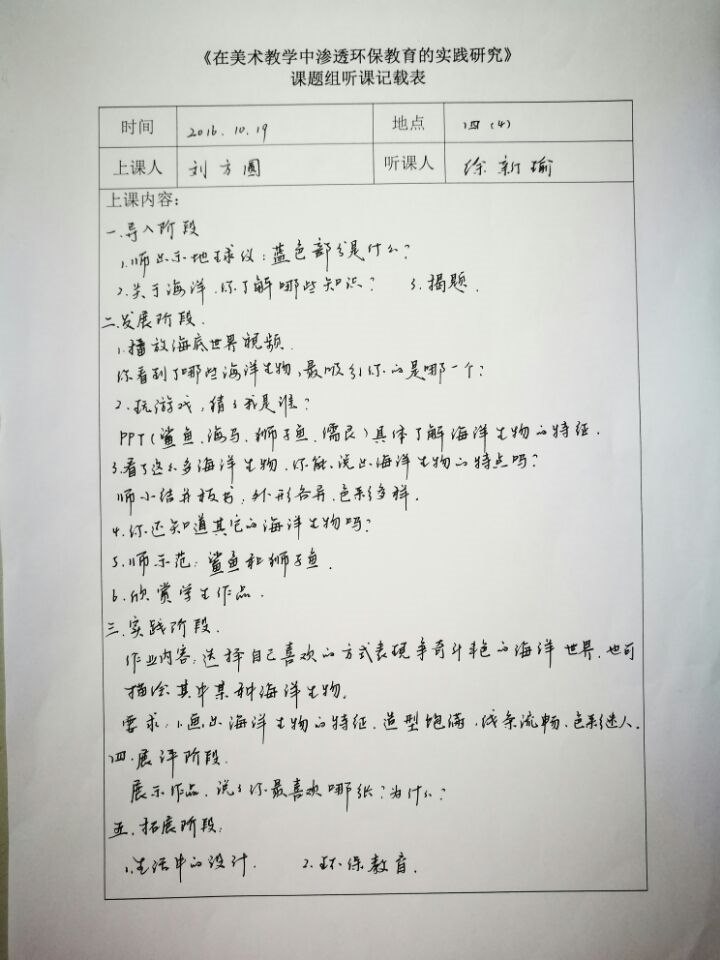 《在美术教学中渗透环保教育的实践研究》
课题组听课记载表
时间 2016.10.19 地点 四（4）
上课人 刘方圆 听课人 徐新瑜
上课内容：
一.导入阶段
1.师出示地球仪：蓝色部分是什么？
2.关于海洋.你了解哪些知识？ 3.揭题.
二.发展阶段.
1.播放海底世界视频.
你看到了哪些海洋生物，最吸引你的是哪一个？
2.玩游戏，猜猜我是谁？
PPT（鲨鱼.海马.狮子鱼.儒艮）具体了解海洋生物的特征.
3.看了这么多海洋生物.你能说出海洋生物的特点吗？
师小结并板书：外形各异.色彩多样.
4.你还知道其它的海洋生物吗？
5.师示范：鲨鱼和狮子鱼.
6.欣赏学生作品.
三.实践阶段.
作业内容：选择自己喜欢的方式表现争奇斗艳的海洋世界.也可
描绘其中某种海洋生物.
要求：1.画出海洋生物的特征.造型饱满.线条流畅.色彩迷人.
四.展评阶段.
展示作品.说说你最喜欢哪张？为什么？
五.拓展阶段：
1.生活中的设计. 2.环保教育.